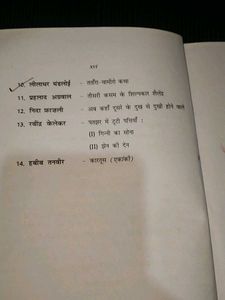 xvi
10. लीलाधर मंडलोई - तताँरा-वामीरो कथा
11. प्रहलाद अग्रवाल - तीसरी कसम के शिल्पकार शैलेंद्र
12. निदा फ़ाज़ली - अब कहाँ दूसरे के दुख से दुखी होने वाले
13. रवींद्र केलेकर - पतझर में टूटी पत्तियाँ :
(I) गिन्नी का सोना
(II) झेन की देन
14. हबीब तनवीर - कारतूस (एकांकी)